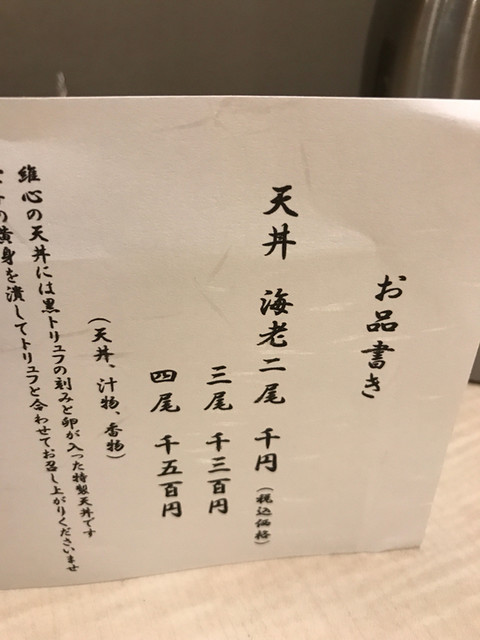 お品書き
天丼 海老二尾 千円(税込価格)
三尾 千三百円
四尾 千五百円
(天丼、汁物、香物)
維心の天丼には黒トリュフの刻みと卵が入った特製天丼です
の黄身を潰してトリュフと合わせてお召し上がりくださいませ